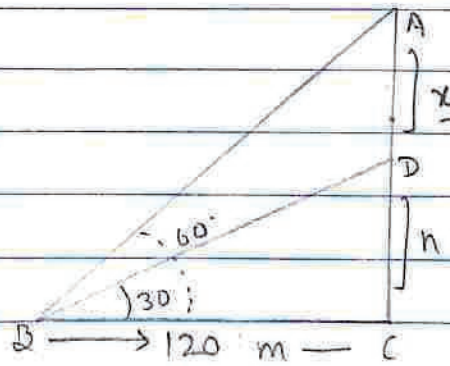 A
x
D
60°
h
30°
B → 120 m — C